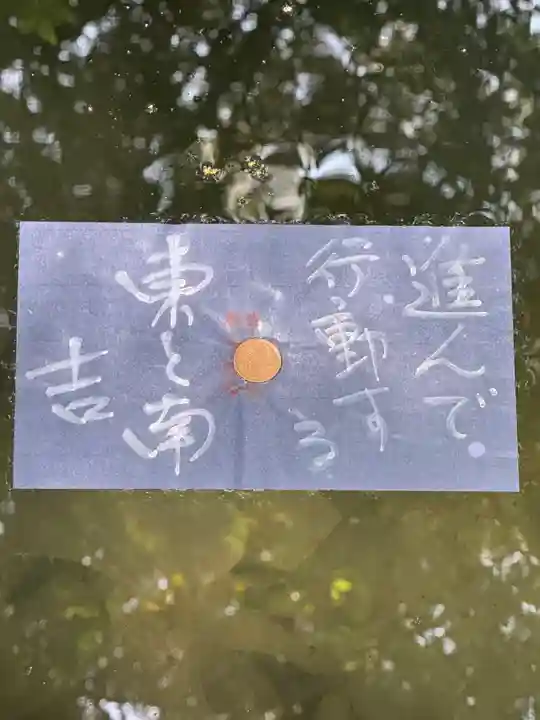 進んで
行動する
東と南
吉